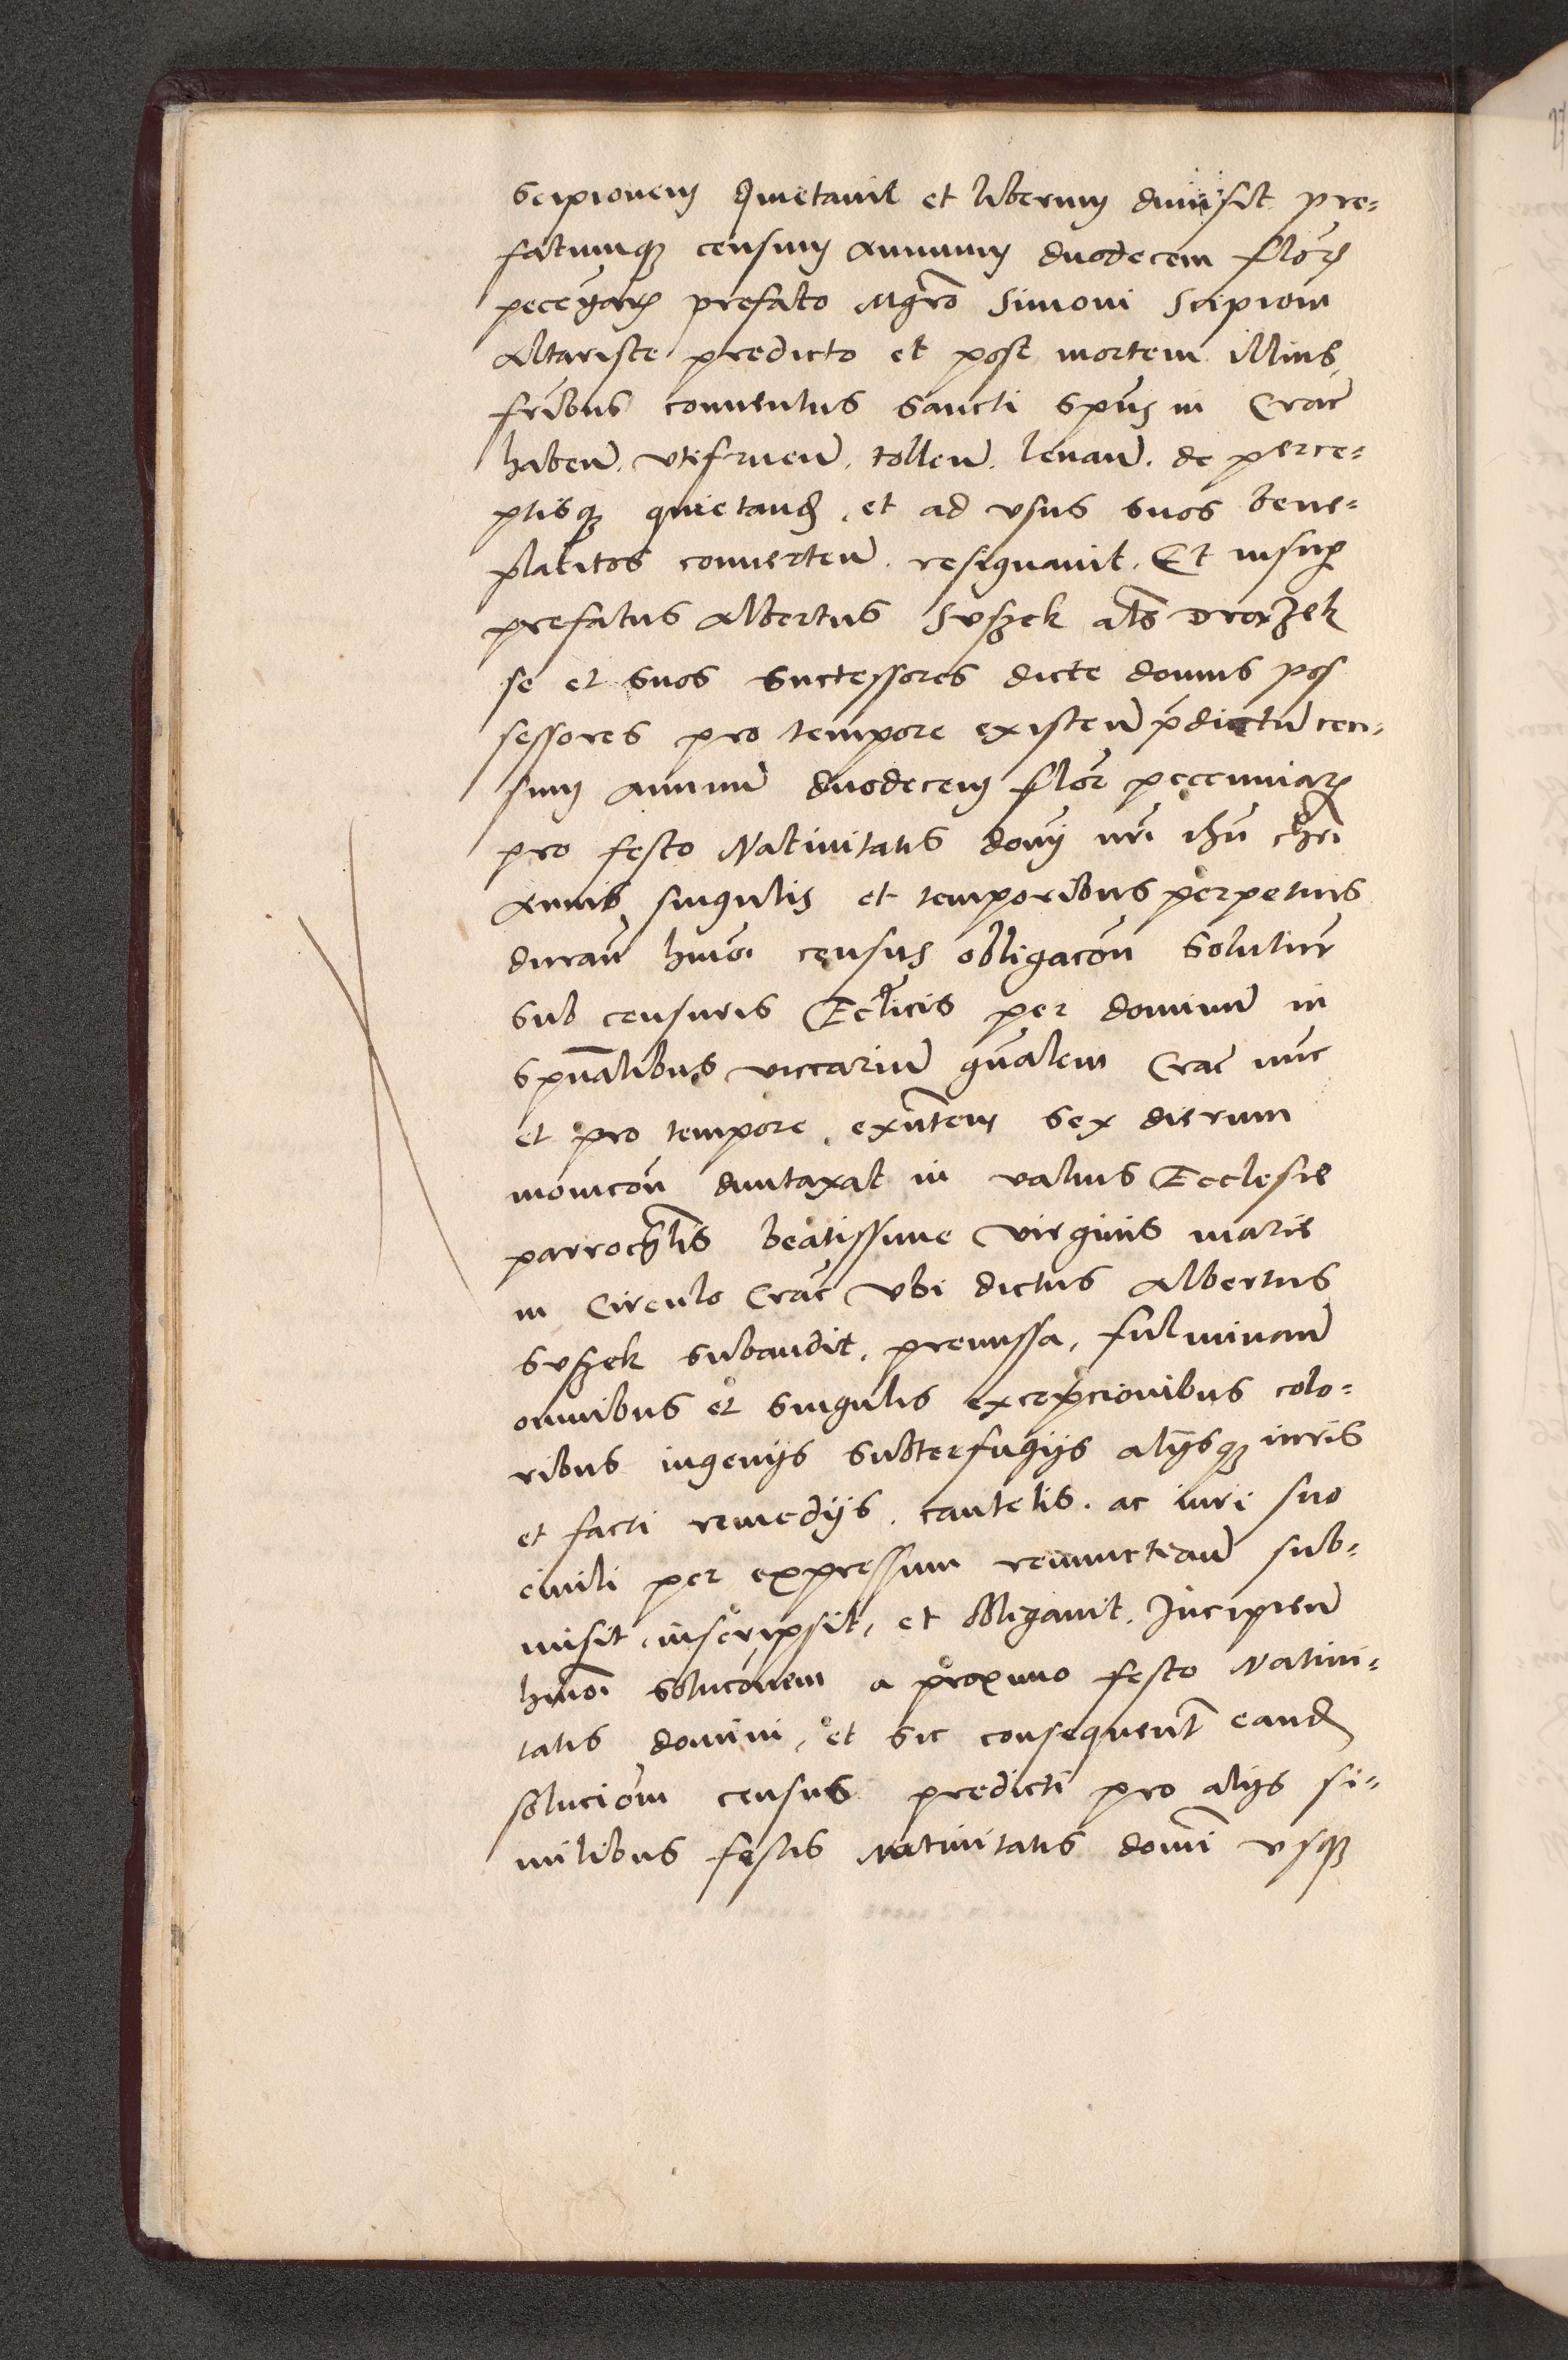 Scipionem Quietauit et liberum dimisit pre=
fatumq censum annuum duodecem florꝫ
pecuniarꝫ prefato Mgro Simoni Scipioni
Altariste predicto et post mortem illius,
fribus conuentus Sancti Spus in Crac
haben. vtifruen. tollen. leuan. de perce=
ptisq quietand, et ad vsus suos bene=
placitos conuerten. resignauit. Et insup
prefatus Albertus Suszek als Drozzek
se et suos successores dicte domus pos
sessores pro tempore existen pdictu cen=
sum annuu duodecem flor pecuniarꝫ
pro festo Natiuitatis domi nri ihu chri
annis singulis et temporibus perpetuis
duran hmoi census obligacon soluturꝫ
sub censuris Ecclicis per dominu in
spualibus viccariu gnalem Crac nuc
et pro tempore exntem sex dierum
monicon duntaxat in valuis Ecclesie
parrochlis beatissime virginis marie
in Circulo Crac vbi dictus Albertus
Suszek subaudit, premissa, fulminan
omnibus et singulis excepcionibus colo=
ribus ingenijs subterfugijs alijsq iuris
et facti remedijs, cautelis. ac iuri suo
ciuili per expressum renuncian sub=
misit, inscripsit, et obligauit. Incipien
hmoi soluconem a proximo festo Natiui=
tatis domini, et sic consequent eand
solucionem census predicti pro alijs si=
milibus festis Natiuitatis domi vsq